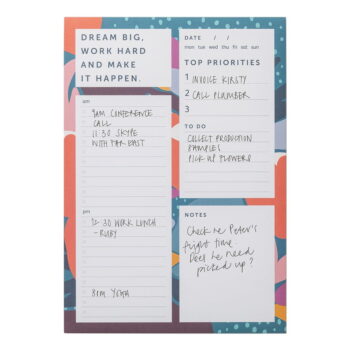 DREAM BIG,
WORK HARD
AND MAKE
IT HAPPEN.
am
9AM CONFERENCE
CALL
11:30 SKYPE
WITH FAR EAST
pm
12:30 WORK LUNCH
- RUBY
8PM YOGA
DATE / /
mon tue wed thu fri sat sun
TOP PRIORITIES
1 INVOICE KIRSTY
2 CALL PLUMBER
3
TO DO
COLLECT PRODUCTION
SAMPLES
PICK UP FLOWERS
NOTES
Check Peter's
flight time.
Does he need
picked up?